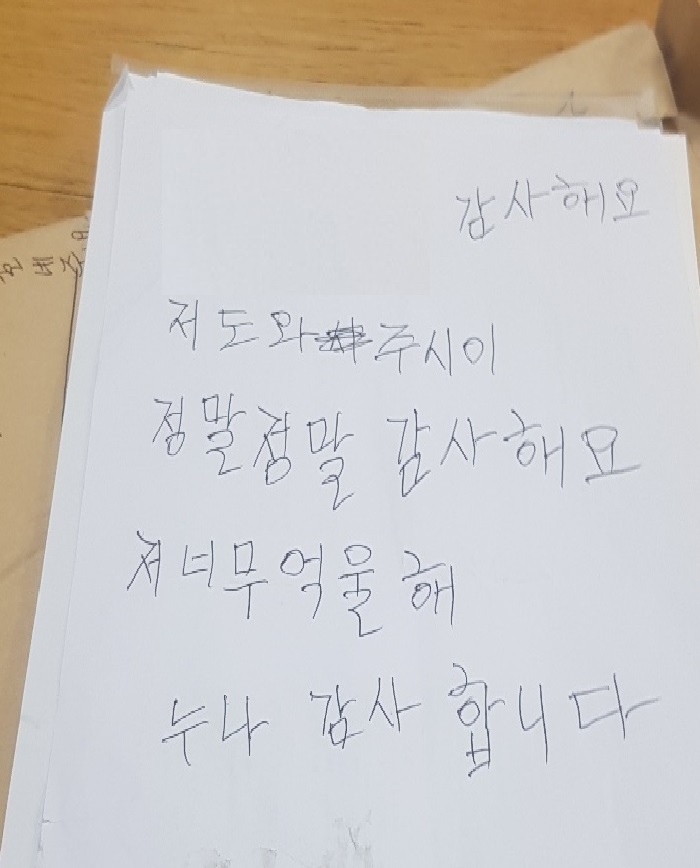 감사해요
저도와주시이
정말정말 감사해요
저너무억울해
누나 감사합니다
네